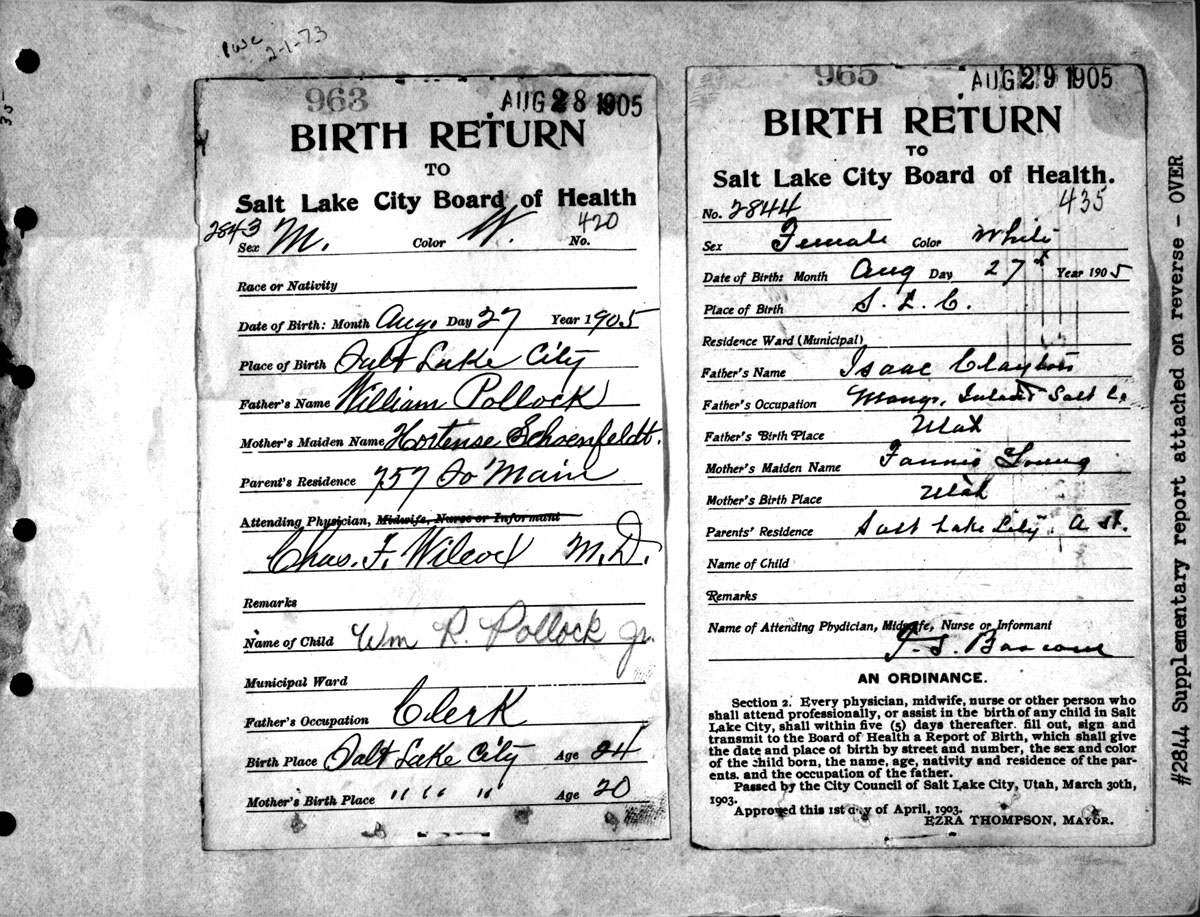 2-1-73
963
AUG 28 1905
BIRTH RETURN
TO
Salt Lake City Board of Health
2843
Sex M. Color W. No. 420
Race or Nativity
Date of Birth: Month Aug. Day 27 Year 1905
Place of Birth Salt Lake City
Father's Name William Pollock
Mother's Maiden Name Hortense Schoenfeldt.
Parent's Residence 757 So Main
Attending Physician, Midwife, Nurse or Informant
Chas. F. Wilcox M.D.
Remarks
Name of Child Wm R. Pollock Jr.
Municipal Ward
Father's Occupation Clerk
Birth Place Salt Lake City Age 24
Mother's Birth Place " " " " Age 20
965
AUG 29 1905
BIRTH RETURN
TO
Salt Lake City Board of Health.
No. 2844 435
Sex Female Color White
Date of Birth: Month Aug Day 27 Year 1905
Place of Birth S. L. C.
Residence Ward (Municipal)
Father's Name Isaac Clayton
Father's Occupation Mangr. Inland Salt Co
Father's Birth Place Utah
Mother's Maiden Name Fannie Young
Mother's Birth Place Utah
Parents' Residence Salt Lake City. A St.
Name of Child
Remarks
Name of Attending Phydician, Midwife, Nurse or Informant
AN ORDINANCE.
Section 2. Every physician, midwife, nurse or other person who
shall attend professionally, or assist in the birth of any child in Salt
Lake City, shall within five (5) days thereafter. fill out, sign and
transmit to the Board of Health a Report of Birth, which shall give
the date and place of birth by street and number, the sex and color
of the child born, the name, age, nativity and residence of the par-
ents. and the occupation of the father.
Passed by the City Council of Salt Lake City, Utah, March 30th,
1903.
Approved this 1st day of April, 1903.
EZRA THOMPSON, MAYOR.
#2844 Supplementary report attached on reverse - OVER